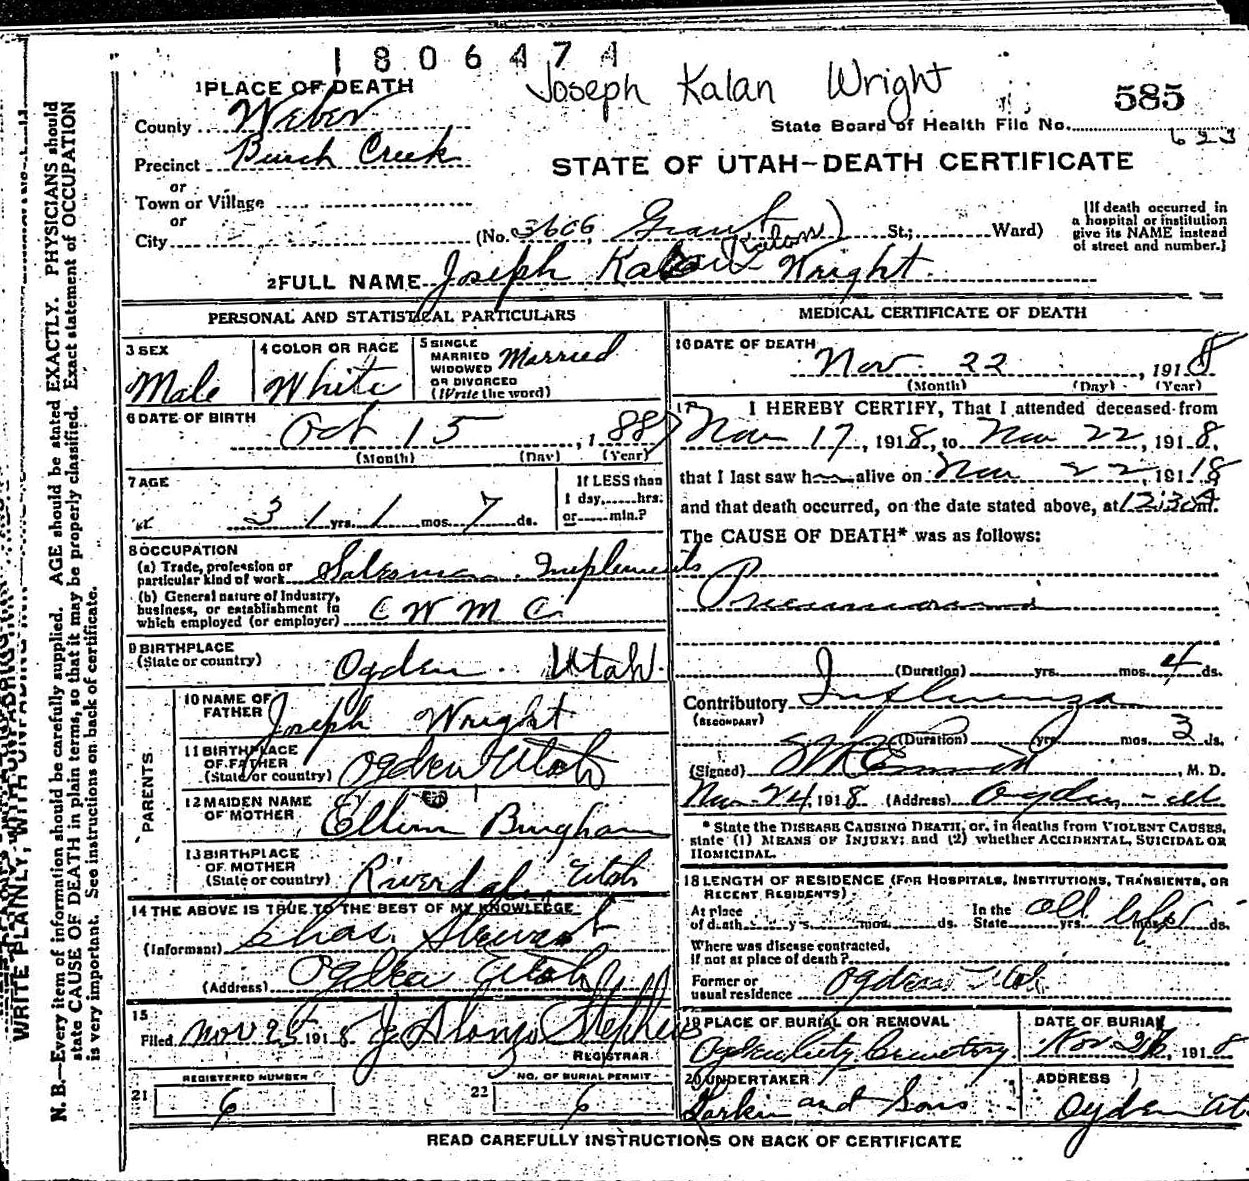 1806474
Joseph Kalan Wright
585
State Board of Health File No.
623
STATE OF UTAH-DEATH CERTIFICATE
1 PLACE OF DEATH
County Weber
Precinct Burch Creek
or
Town or Village
or
City
(No. 3606 Grant St.; Ward)
[If death occurred in
a hospital or institution
give its NAME instead
of street and number.]
(Kalan)
2 FULL NAME Joseph Wright
PERSONAL AND STATISTICAL PARTICULARS
3 SEX
Male
4 COLOR OR RACE
White
5 SINGLE
MARRIED
WIDOWED
OR DIVORCED
(Write the word)
Married
6 DATE OF BIRTH
Oct 15, 1887
(Month) (Day) (Year)
7 AGE
31 yrs. 1 mos. 7 ds.
If LESS than
1 day, hrs.
or min.?
8 OCCUPATION
(a) Trade, profession or
particular kind of work Salesman. Implements
(b) General nature of Industry,
business, or establishment in
which employed (or employer) C W M C
9 BIRTHPLACE
(State or country) Ogden Utah
PARENTS
10 NAME OF
FATHER Joseph Wright
11 BIRTHPLACE
OF FATHER
(State or country) Ogden Utah
12 MAIDEN NAME
OF MOTHER Bingham
13 BIRTHPLACE
OF MOTHER
(State or country) Riverdale Utah
14 THE ABOVE IS TRUE TO THE BEST OF MY KNOWLEDGE
(Informant) Chas. Stewart
(Address) Ogden Utah
15
Filed Nov 25 1918 J Alonzo Stephens
REGISTRAR
21 REGISTERED NUMBER
6
22 NO. OF BURIAL PERMIT
6
MEDICAL CERTIFICATE OF DEATH
16 DATE OF DEATH
Nov 22, 1918
(Month) (Day) (Year)
17 I HEREBY CERTIFY, That I attended deceased from
Nov 17, 1918, to Nov 22, 1918,
that I last saw h alive on Nov 22, 1918
and that death occurred, on the date stated above, at 12:30 A m.
The CAUSE OF DEATH* was as follows:
Pneumonia
(Duration) yrs. mos. 4 ds.
Contributory Influenza
(SECONDARY)
(Duration) yrs. mos. 3 ds.
(Signed) , M. D.
Nov 24, 1918 (Address) Ogden - Ut
* State the DISEASE CAUSING DEATH, or, in deaths from VIOLENT CAUSES,
state (1) MEANS OF INJURY; and (2) whether ACCIDENTAL, SUICIDAL OR
HOMICIDAL.
18 LENGTH OF RESIDENCE (FOR HOSPITALS, INSTITUTIONS, TRANSIENTS, OR
RECENT RESIDENTS)
At place
of death yrs. mos. ds.
In the
State All life yrs. mos. ds.
Where was disease contracted,
if not at place of death?
Former or
usual residence Ogden Utah
19 PLACE OF BURIAL OR REMOVAL
Ogden City Cemetery
DATE OF BURIAL
Nov 1918
20 UNDERTAKER
Larkin and Sons
ADDRESS
Ogden Ut
READ CAREFULLY INSTRUCTIONS ON BACK OF CERTIFICATE
WRITE PLAINLY, WITH UNFADING INK
N. B.—Every item of information should be carefully supplied. AGE should be stated EXACTLY. PHYSICIANS should
state CAUSE OF DEATH in plain terms, so that it may be properly classified. Exact statement of OCCUPATION
is very important. See instructions on back of certificate.